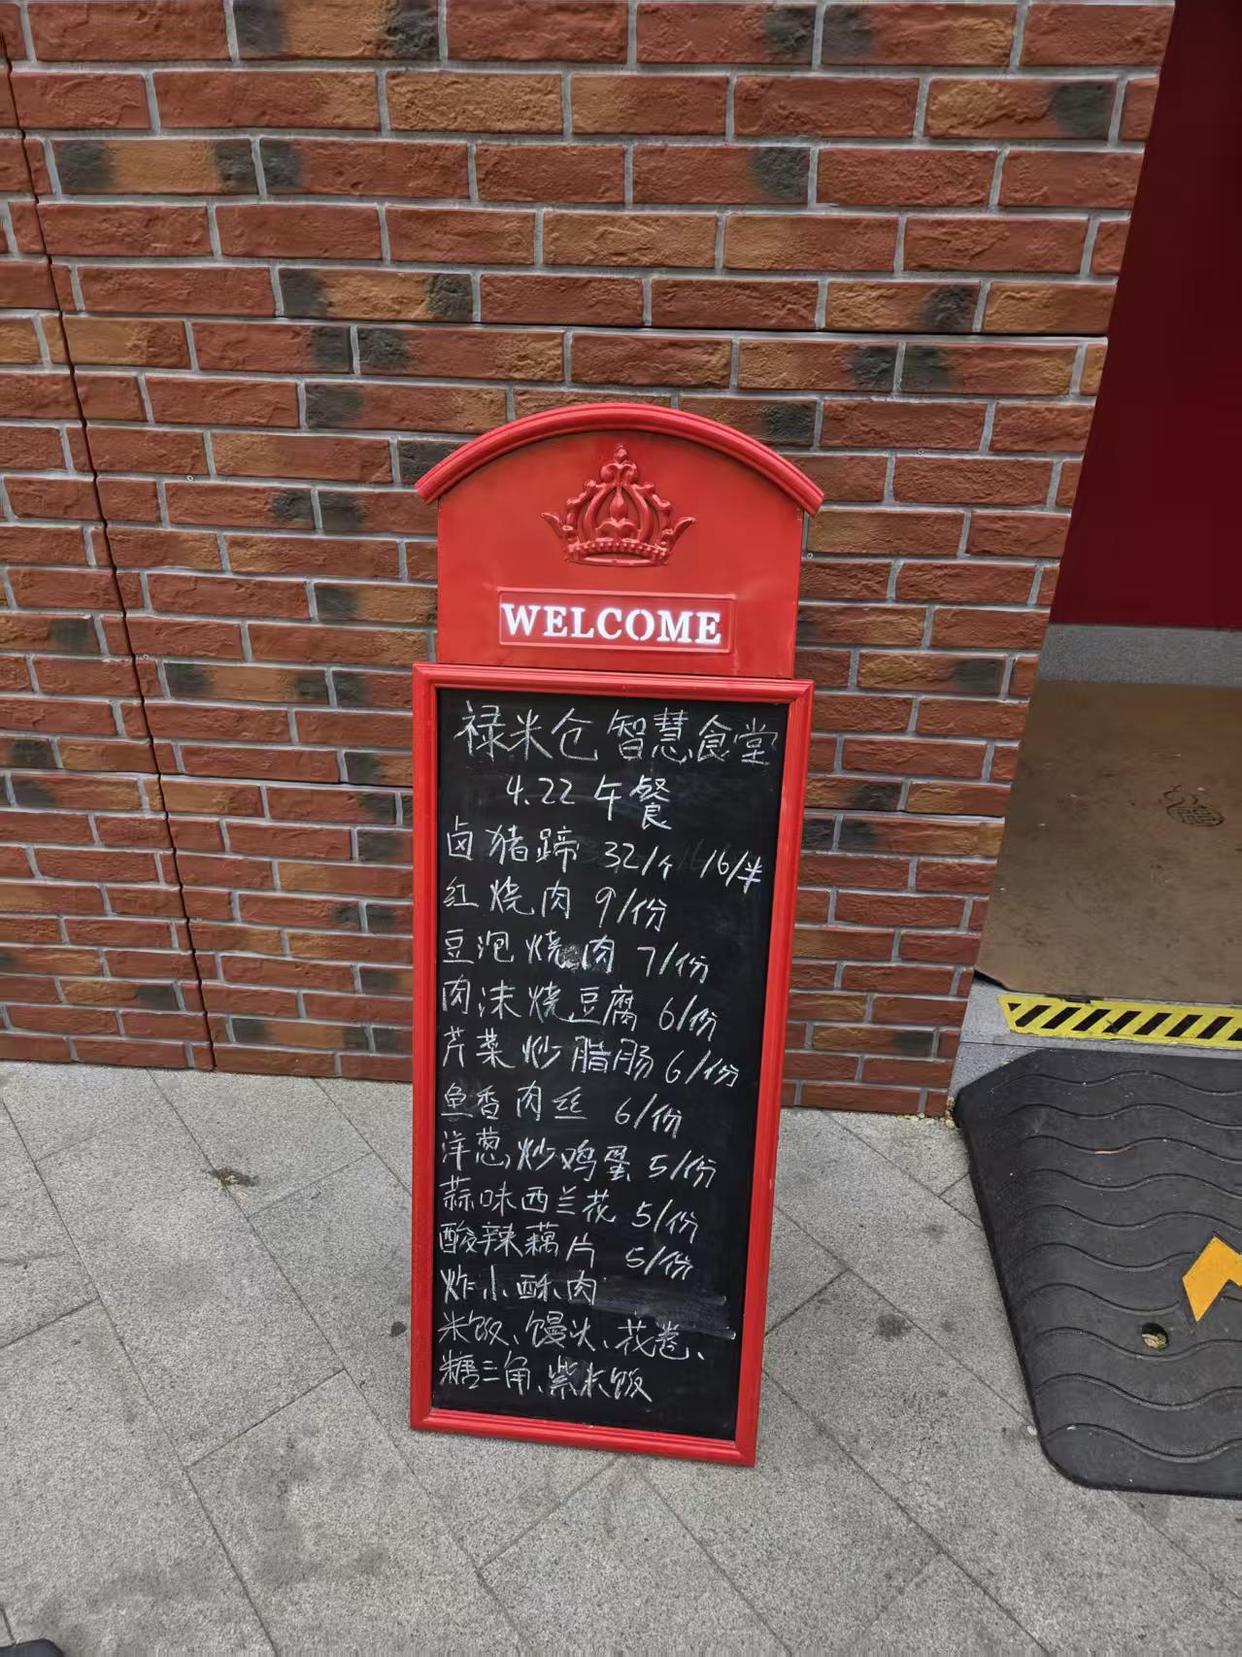 WELCOME
禄米仓 智慧食堂
4.22 午餐
卤猪蹄 32/个 16/半
红烧肉 9/份
豆泡烧肉 7/份
肉沫烧豆腐 6/份
芹菜炒腊肠 6/份
鱼香肉丝 6/份
洋葱炒鸡蛋 5/份
蒜味西兰花 5/份
酸辣藕片 5/份
炸小酥肉
米饭、馒头、花卷、
糖三角、紫米饭